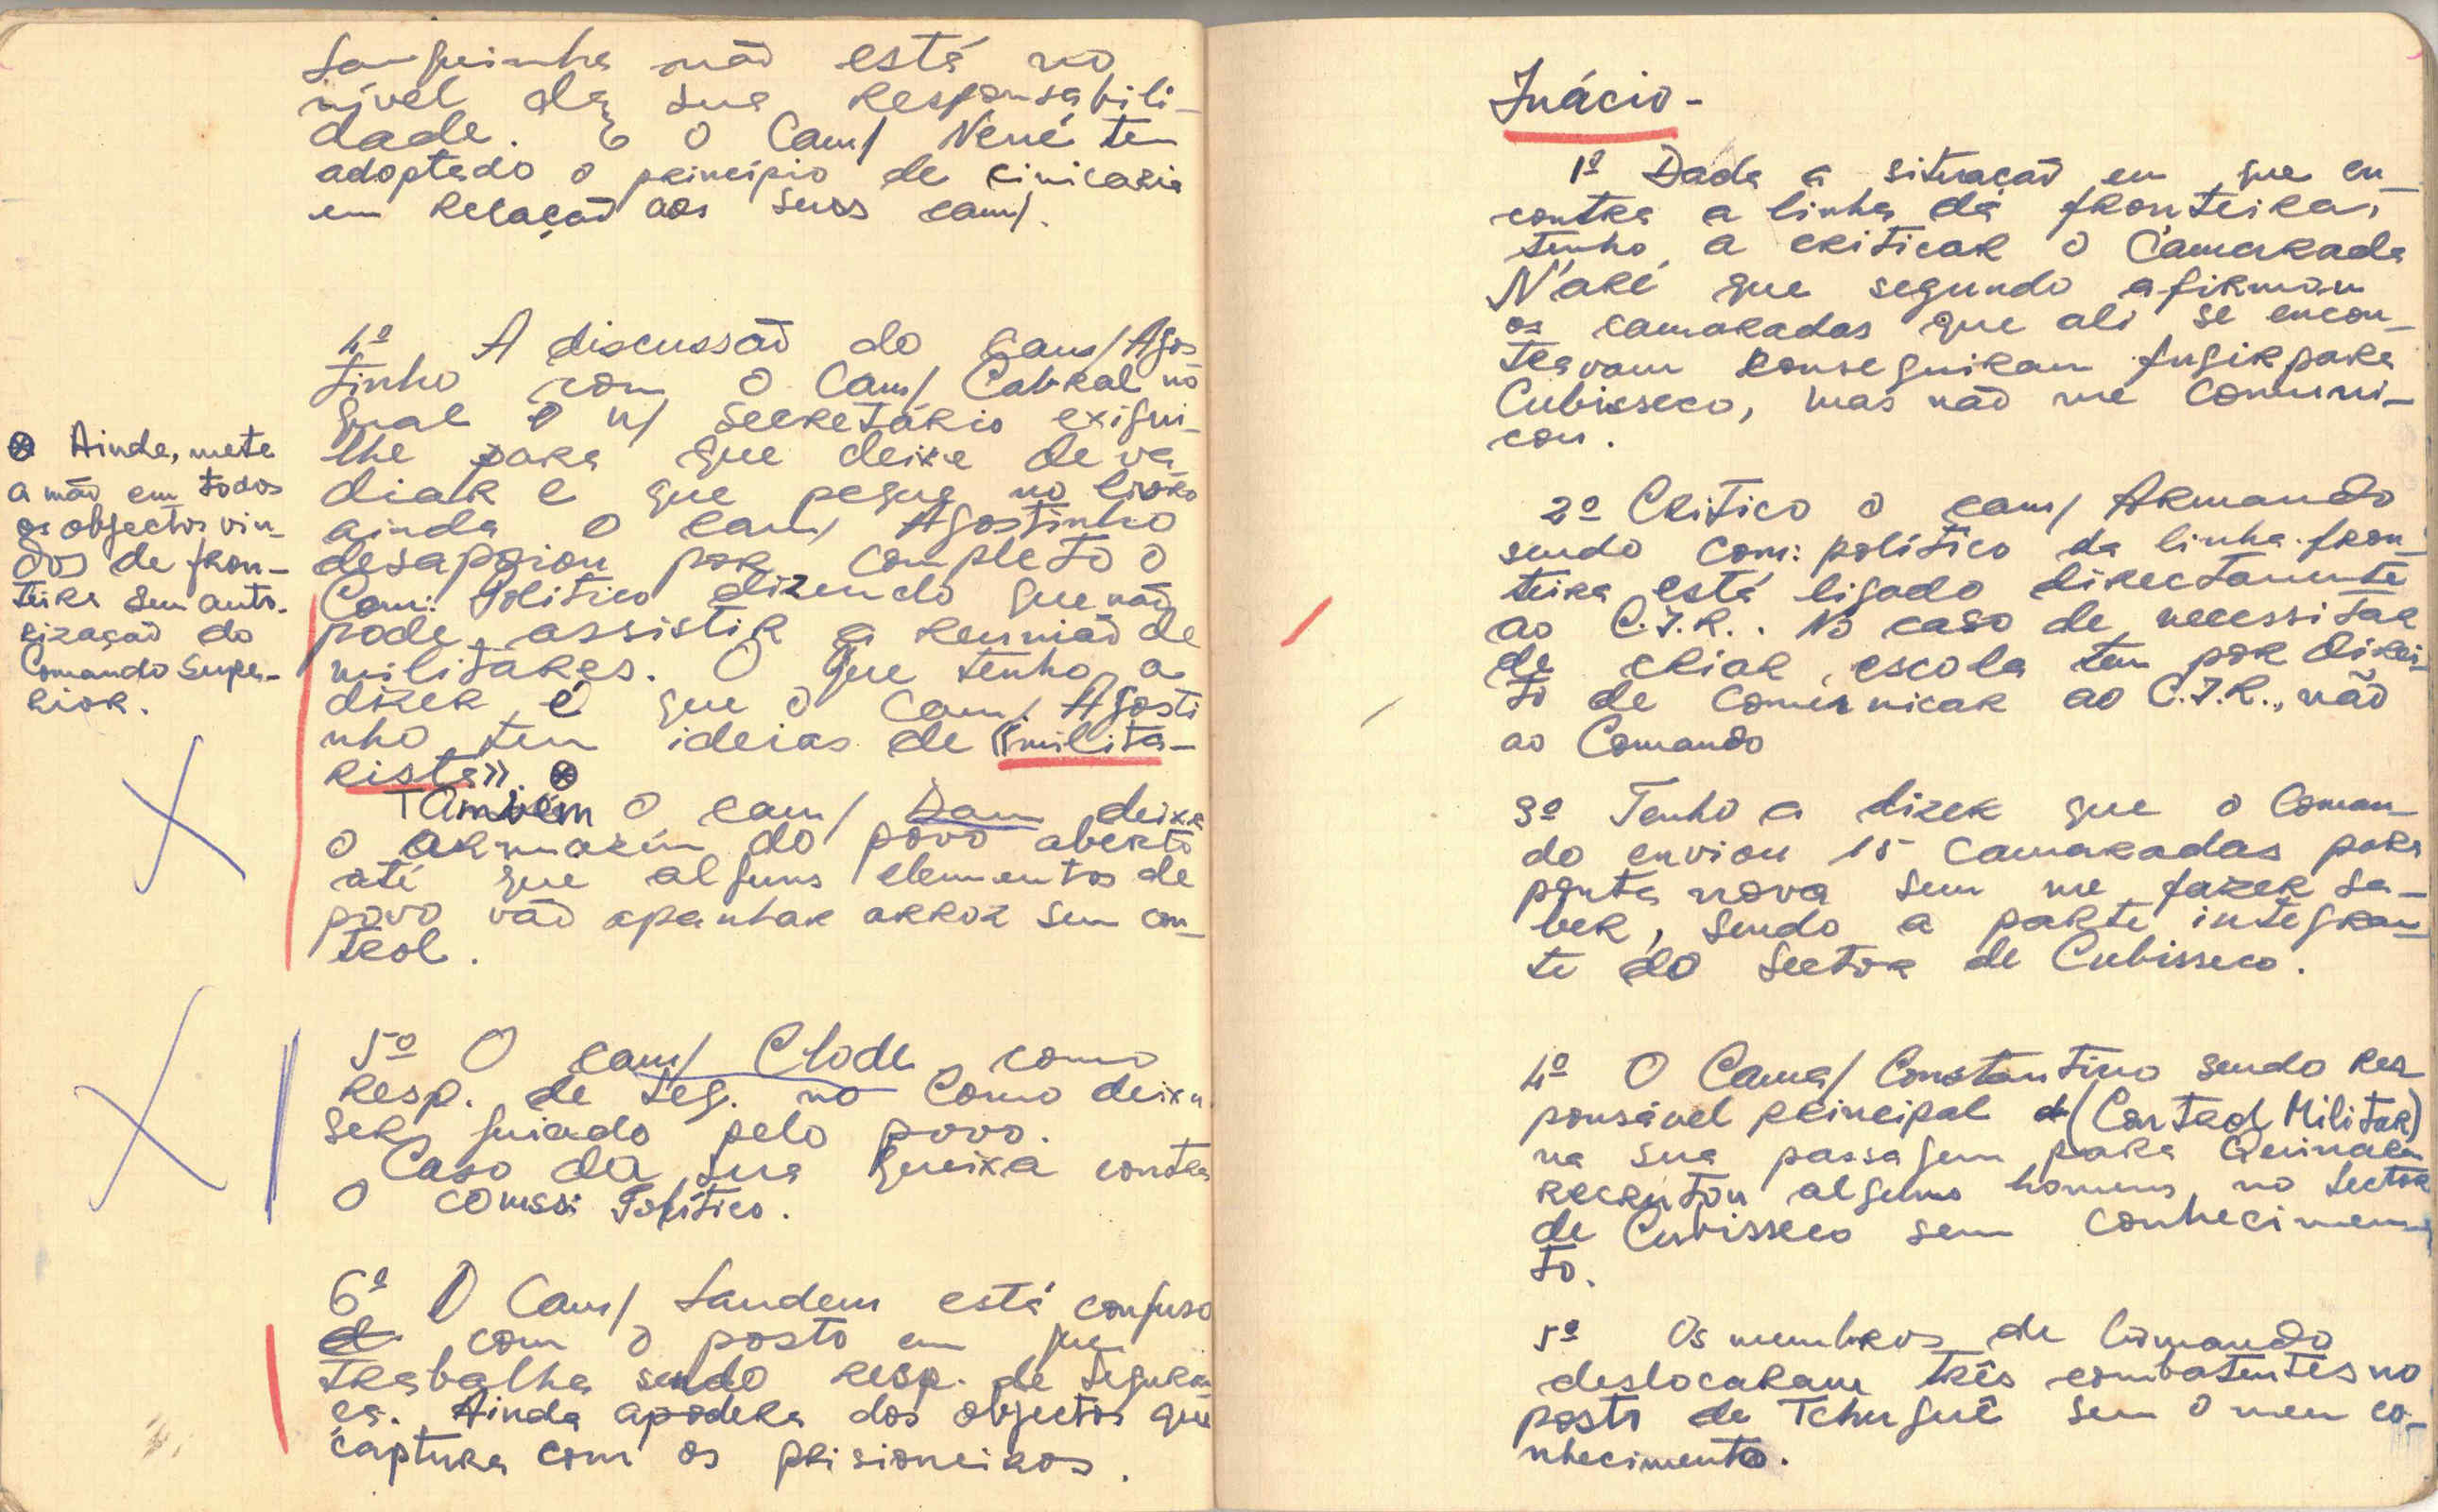 Sanguinha não está no
nível da sua responsabili-
dade. E o Cam/ Nené tem
adoptado o princípio de
em relação aos seus cam/.
4º A discussão do Cam/ Agos
tinho com o Cam/ Cabral no
qual o n/ secretário exigui-
lhe para que deixe de va
diar e que pegue no livro
ainda o cam/ Agostinho
desapoiou por completo o
Com: Político dizendo que não
pode assistir a reunião de
militares. O que tenho a
dizer é que o cam/ Agosti
nho tem ideias de «milita-
rista». ⊗
⊗ Ainda, mete
a mão em todos
os objectos vin-
dos de fron-
teira sem auto-
rização do
Comando Supe-
rior.
Também o cam/ Dam deixa
o armazém do povo aberto
até que alguns elementos de
povo vão apanhar arroz sem con-
trol.
5º O cam/ Clode, como
resp. de seg. no Como deixa
ser guiado pelo povo.
Caso da sua queixa contra
o comssi Político.
6º O Cam/ Sandem está confuso
d com o posto em que
trabalha sendo resp. de seguran
ça. Ainda apodera dos objectos que
captura com os prisioneiros.
Inácio-
1º Dada a situação em que en-
contra a linha da fronteira,
tenho a criticar o Camarada
N'aré que segundo afirmam
os camaradas que ali se encon-
travam conseguiram fugir para
Cubisseco, mas não me comuni-
cou.
2º Critico o cam/ Armando
sendo com: político da linha fron-
teira está ligado directamente
ao C.I.R.. No caso de necessitar
de criar escola tem por direi-
to de comunicar ao C.I.R., não
ao Comando
3º Tenho a dizer que o Coman-
do enviou 15 camaradas para
ponta nova sem me fazer sa-
ber, sendo a parte integran-
te do Sector de Cubisseco.
4º O Cama/ Constantino sendo res
ponsável principal d (Control Militar)
na sua passagem para Quinara
recrutou alguns homens no sector
de Cubisseco sem conhecimen-
to.
5º Os membros de Comando
deslocaram três combatentes no
posto de Tchuguê sem o meu co-
nhecimento.